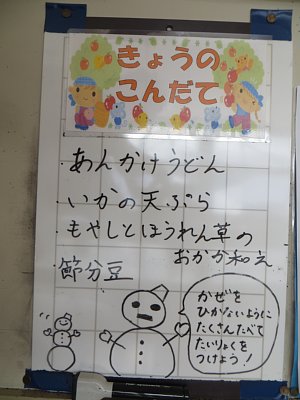 きょうの
こんだて
・あんかけうどん
・いかの天ぷら
・もやしとほうれん草の
おかか和え
・節分豆
かぜを
ひかないように
たくさんたべて
たいりょくを
つけよう!